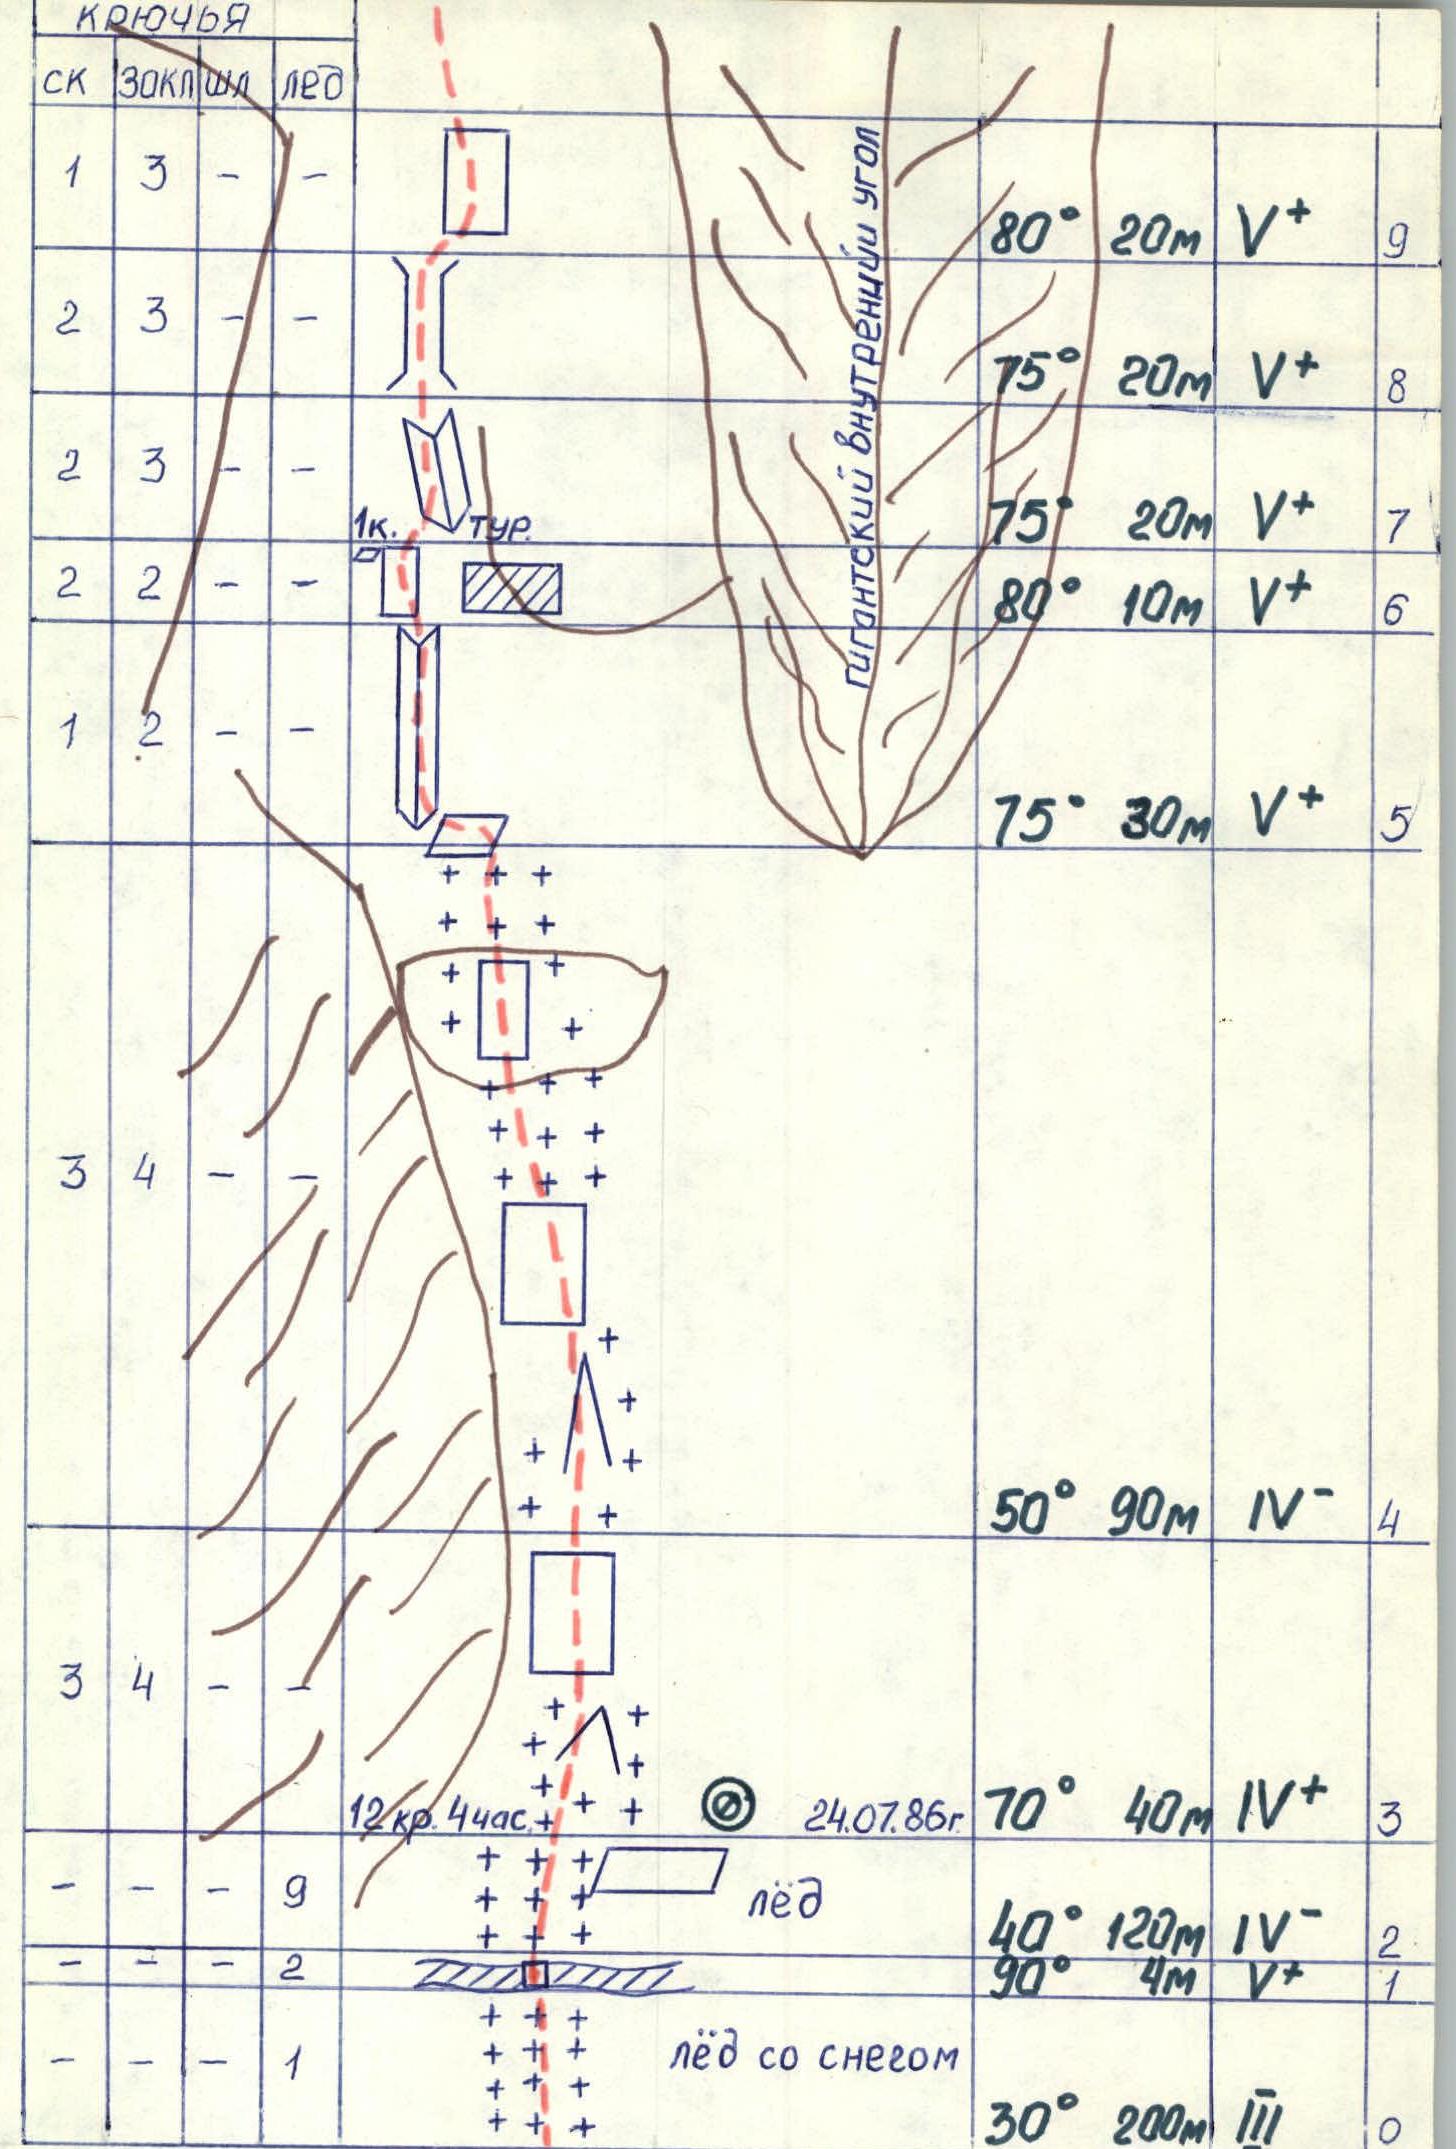 крючья
ск закл шл лёд
1 3 - - 80° 20м V+ 9
2 3 - - 75° 20м V+ 8
2 3 - - 75° 20м V+ 7
1к. тур.
2 2 - - 80° 10м V+ 6
гигантский внутрений угол
1 2 - - 75° 30м V+ 5
3 4 - - 50° 90м IV- 4
3 4 - - 70° 40м IV+ 3
12 кр. 4 час. 24.07.86г.
- - - 9 лёд 40° 120м IV- 2
- - - 2 90° 4м V+ 1
- - - 1 лёд со снегом 30° 200м III 0